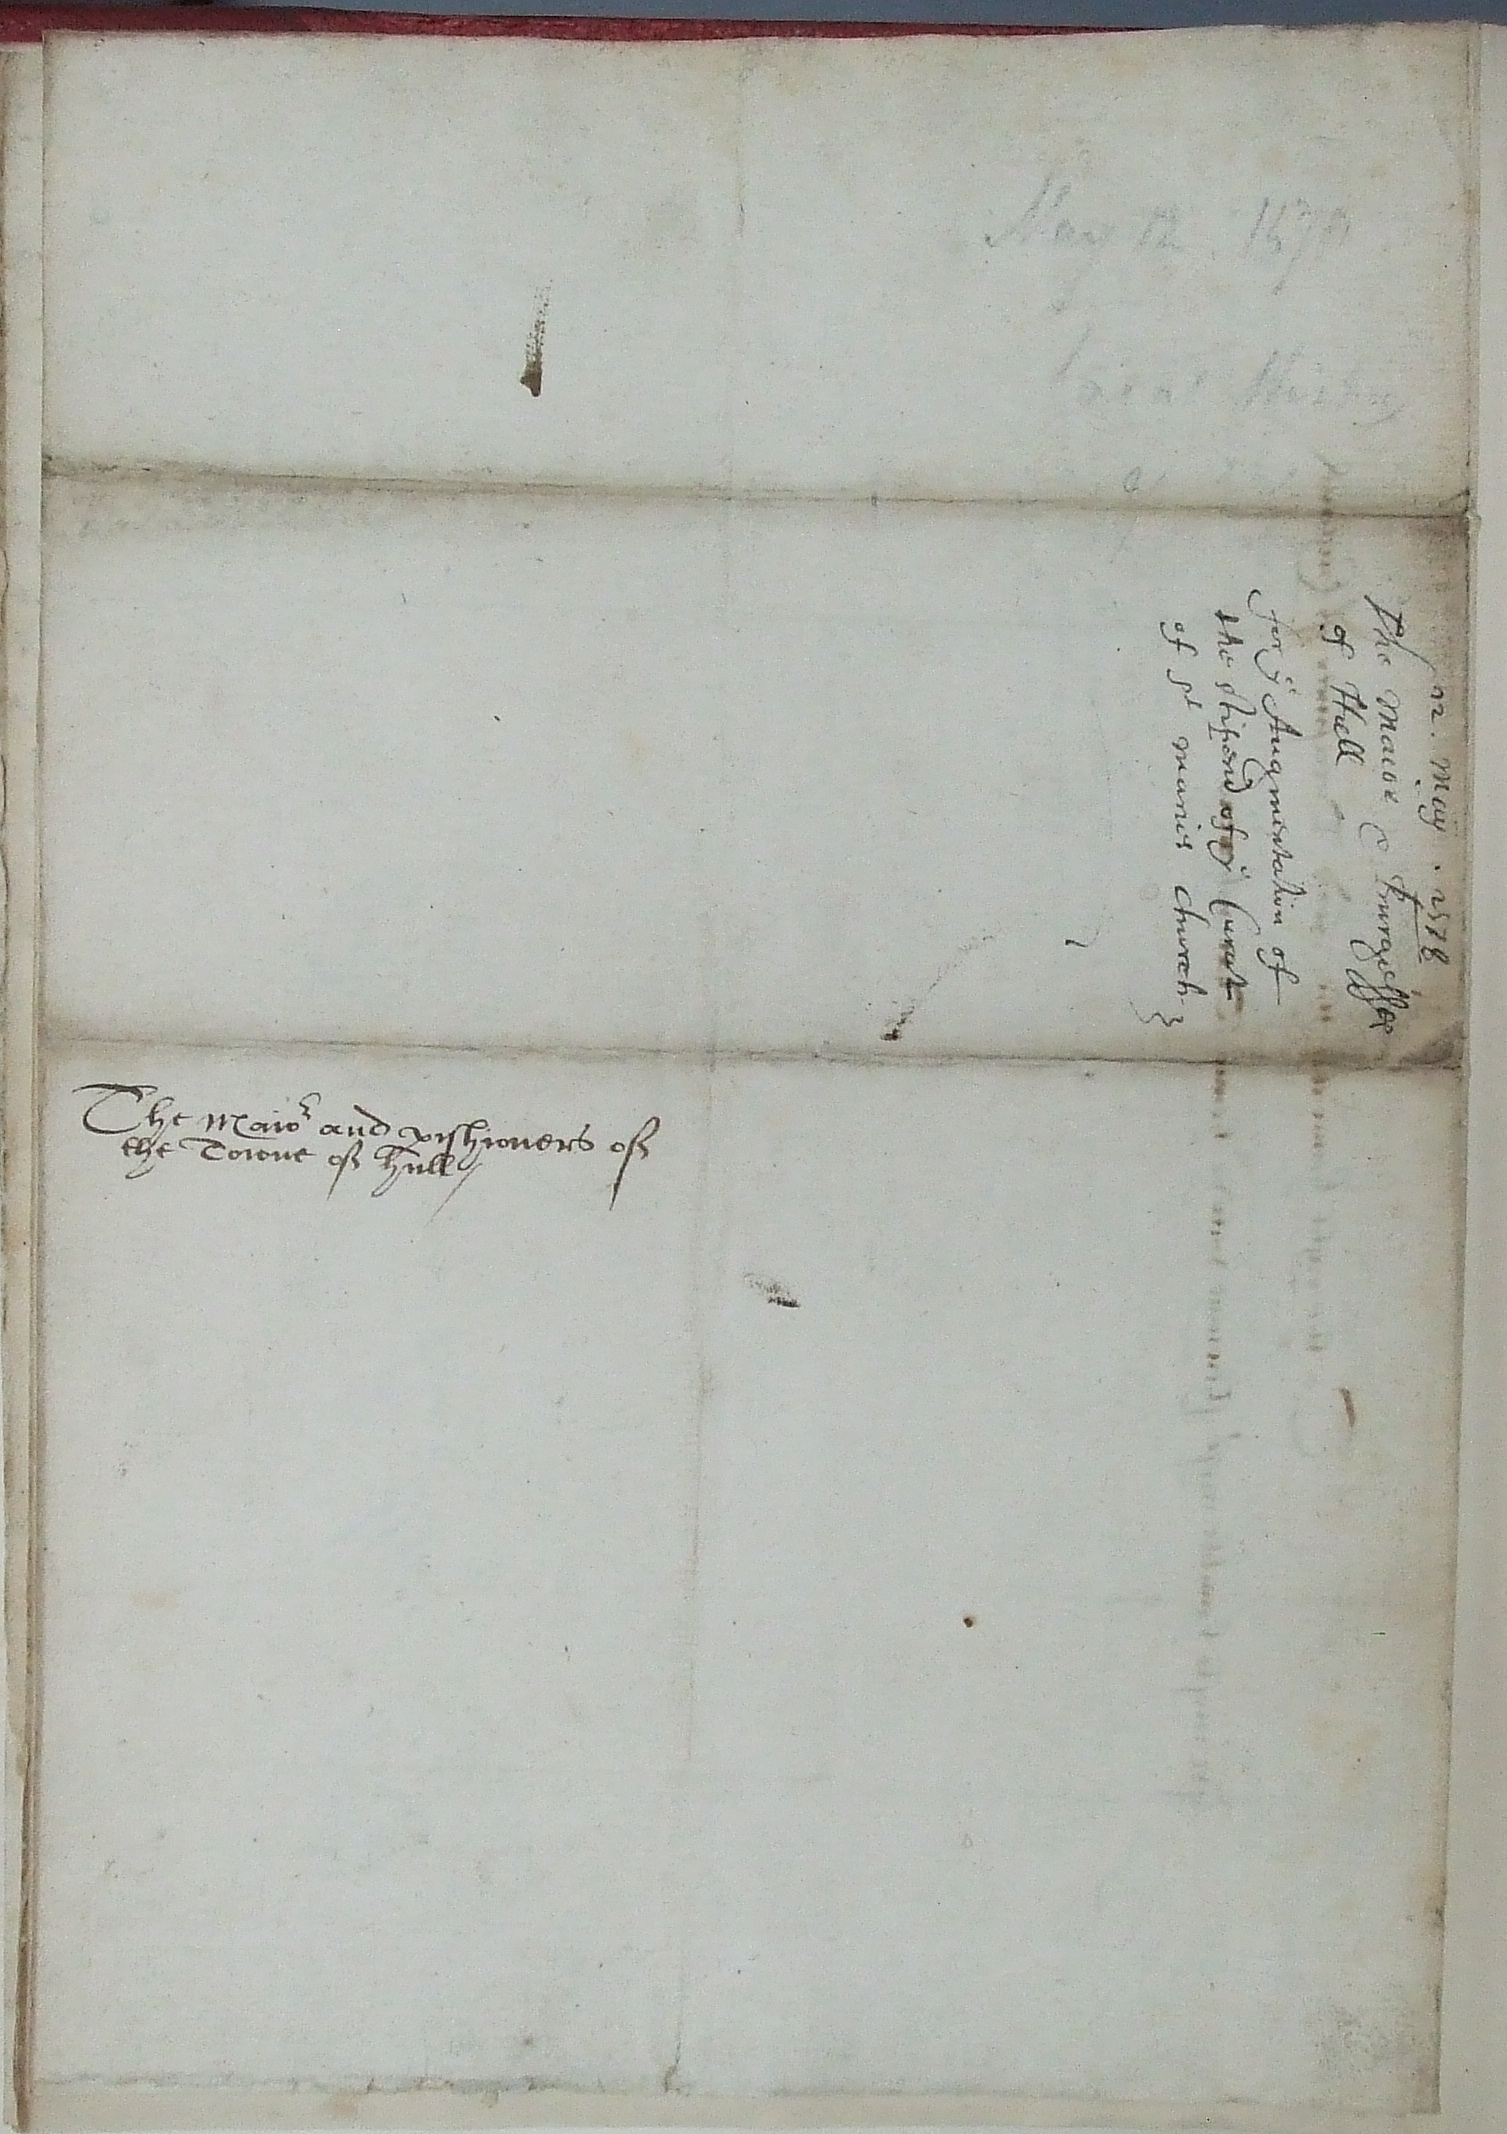 May 12 1578
12 . May . 1578
The Maior & Burgesses
of Hull
for yͤ Augmentation of
the stipend of yͤ Curat
of Sᵗ Maries Church
The Maioʳ and pishioners off
the Towne off Hull